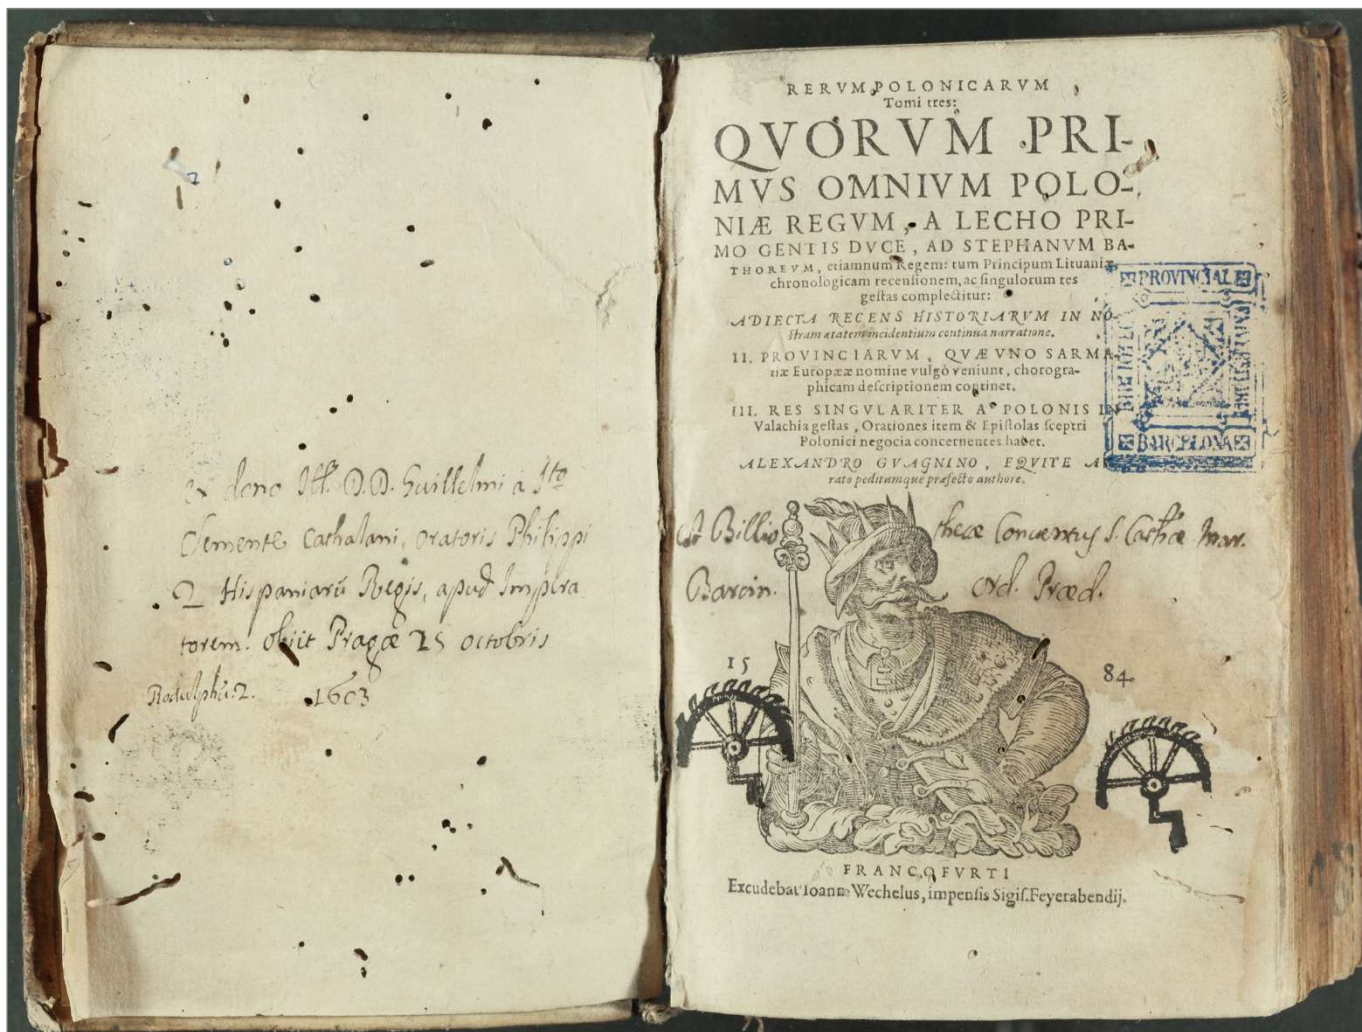 Ex dono Ill. D.D. Guillelmi a Sto
Clemente Cathalani, oratoris Philippi
2 Hispaniarū Regis, apud Impera
torem. obiit Pragæ 25 octobris
Rodulphū.2. 1603
RERVM POLONICARVM
Tomi tres:
QVORVM PRI-
MVS OMNIVM POLO-
NIÆ REGVM, A LECHO PRI-
MO GENTIS DVCE, AD STEPHANVM BA-
THOREVM, etiamnum Regem: tum Principum Lituaniæ
chronologicam recensionem, ac singulorum res
gestas complectitur:
ADIECTA RECENS HISTORIARVM IN NO-
stram ætatem incidentium continua narratione.
II. PROVINCIARVM, QVÆ VNO SARMA-
tiæ Europææ nomine vulgò veniunt, chorogra-
phicam descriptionem continet.
III. RES SINGVLARITER A POLONIS IN
Valachia gestas, Orationes item & Epistolas sceptri
Polonici negocia concernentes habet.
ALEXANDRO GVAGNINO, EQVITE A
rato peditumque præfecto authore.
PROVINCIAL
BARCELONA
BIBLIOTECA
est Billiothecæ Conventus S. Cathæ Mar.
Barcin. Ord. Præd.
15 84
FRANCOFVRTI
Excudebat Ioannes Wechelus, impensis Sigis. Feyerabendij.